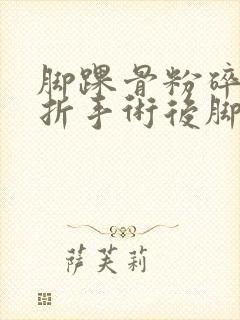 脚踝骨粉碎
折手術後脚
萨芙莉